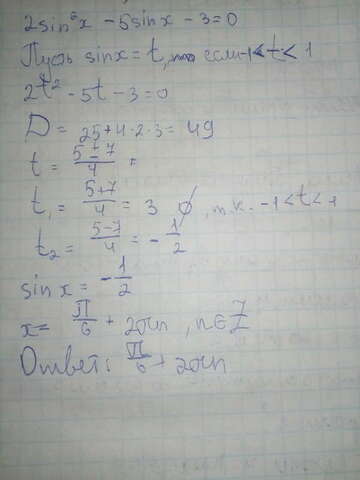 2sin²x - 5sinx - 3=0
Пусть sinx = t, то если -1 < t < 1
2t² - 5t - 3 = 0
D = 25+4·2·3 = 49
t = (5±7)/4 =
t₁ = (5+7)/4 = 3 ∅, т.к. -1 < t < 1
t₂ = (5-7)/4 = -1/2
sin x = -1/2
x = π/6 + 2πn, n∈Z
Ответ: π/6 + 2πn